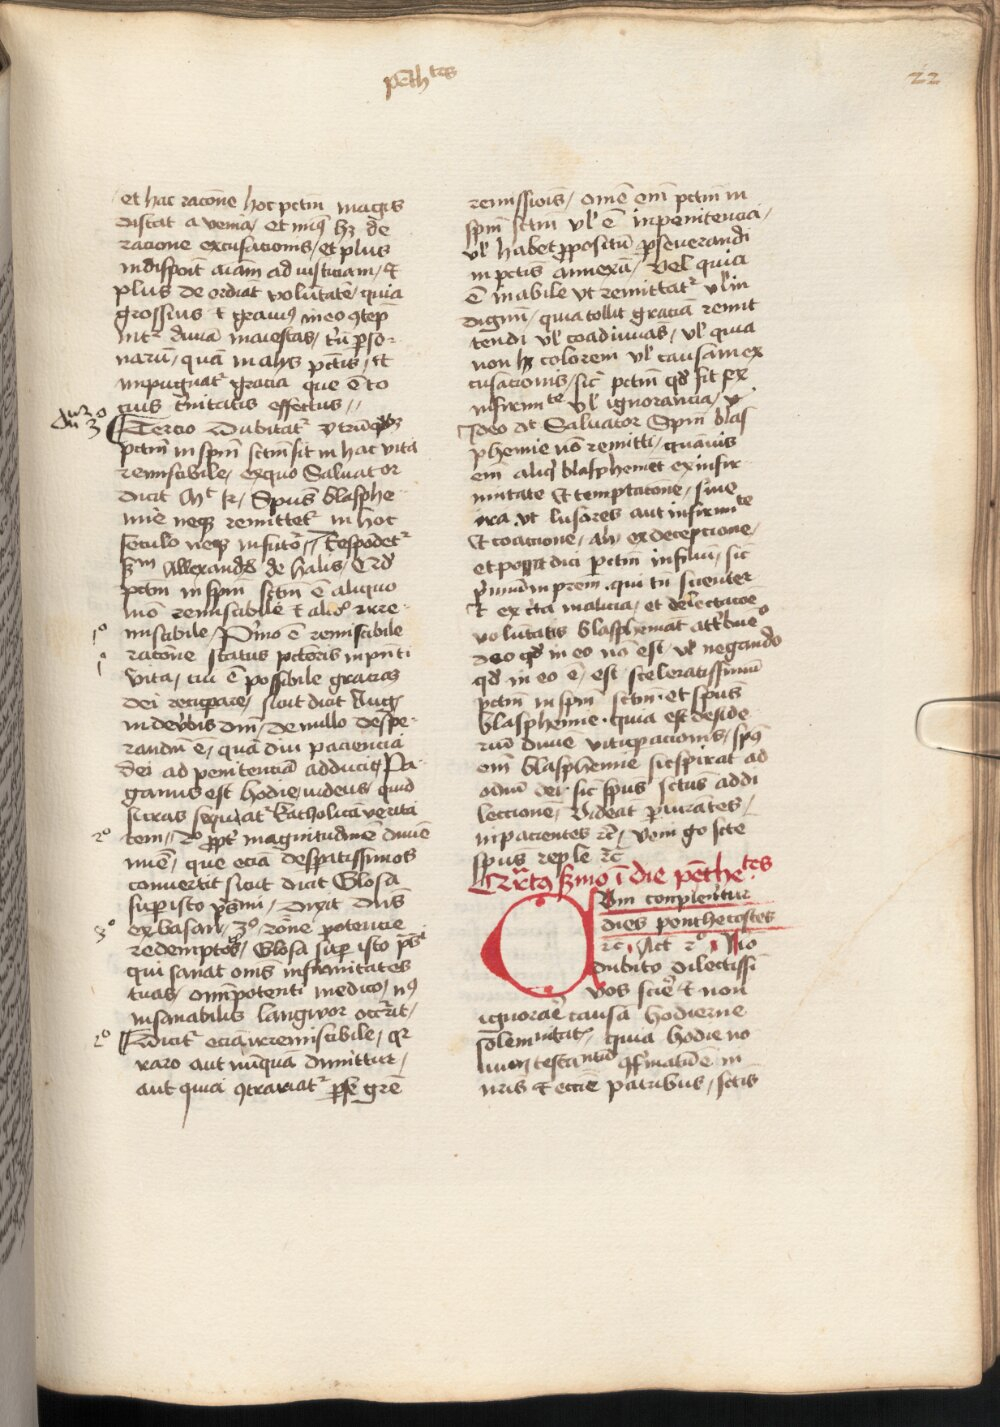 pēthtes
22
et hac racōne hoc pctm̄ magis
distat a venia / et min9 hꝫ de
racione excusacionis / et plus
indisponit aīam ad iusticiam / et
plus de ordīat volūtatē / quia
grossius et graui9 in eo 9tēp
nit2 diuīa maiestas / triū pso
narū / quā in alijs pctis / et
impugnat2 gracia que ē to
cius trinitatis effectus //
Tercio dubitat2 vtrū
pctm̄ in spm̄ sctm̄ sit in hac vita
remissibile / exquo Saluator
dicit Spūs blasphe
mie neqꝫ remittet2 in hoc
seculo neqꝫ in futō // Respōdet2
Allexander de halis /
pctm̄ in spm̄ sctm̄ ē aliquo
mō remissibile et alio irre
missibile / Pmo ē remissibile
1o
racōne status pctoris in pnti
vita / cui ē possibile graciā
dei recipare / sicut dicit Aug
in debis dnī / De nullo despe
randū ē / quā diu paciencia
dei ad penitenciā adducit / Pa
ganus est hodie iudeus / quid
si cras sequat2 katholicā verita
tem // 2o ppt magnitudinē diuīe
2o
mīe / que eciā despatissimos
conuertit sicut dicit Glosa
super isto psmi / dixit dn̄s
ex basan / 3o rōne potencie
3o
redemptoris / Glosa sup isto ps
qui sanat omēs infirmitates
tuas / omīpotenti medico / n9
insanabilis langwor occrit /
Dicit2 eciā irremissibile / qr
2o
raro aut nūquam dimittitur /
aut quia 9trariat2 pse grē
remissiōis / omē em̄ pctm̄ in
spm̄ sctm̄ vl ē inpenitencia /
vl habet ppositū pseuerandi
in pctis annexū / Vel quia
ē inabile vt remittat2 vl in
dignū / quia tollit graciā remit
tendi vl coadiuuās / vl quia
non hꝫ colorem vl causam ex
cusacionis / sic pctm̄ qd fit ex
infirmite vl ignorancia /
Ideo dt Saluator Spm̄ blas
phemie nō remitti / quāuis
em̄ aliqs blasphemet ex infir
mitate et temptacone / siue
ira vt lusores aut infirmite
et coactione / alij ex deceptione /
et possit dici pctm̄ in filiū / sic
pimū in prem̄ qui tn̄ scienter
et ex cta malicia / et delectacoe
volūtatis blasphemat attbue
deo qd in eo nō est / vl negando
qd in eo ē / est sceleratissimū
pctm̄ in spm̄ sctm̄ et spūs
blasphemie quia est deside
riū diuīe vitupacionis / sps
em̄ blasphemie sic spirat ad
odiū dei sic spūs sctūs ad di
lectionē / Videāt piurātes /
inpacientes rc / Veni go scte
spūs reple rc
sermo ī die pēthetes
Cum conplerētur
dies penthecostes
rc / Act 2o / Nō
dubito dilectissi
vos scire et non
ignorare causā hodierne
solemnitatis / quia hodie no
in
nris et eccīe patribus / sctis